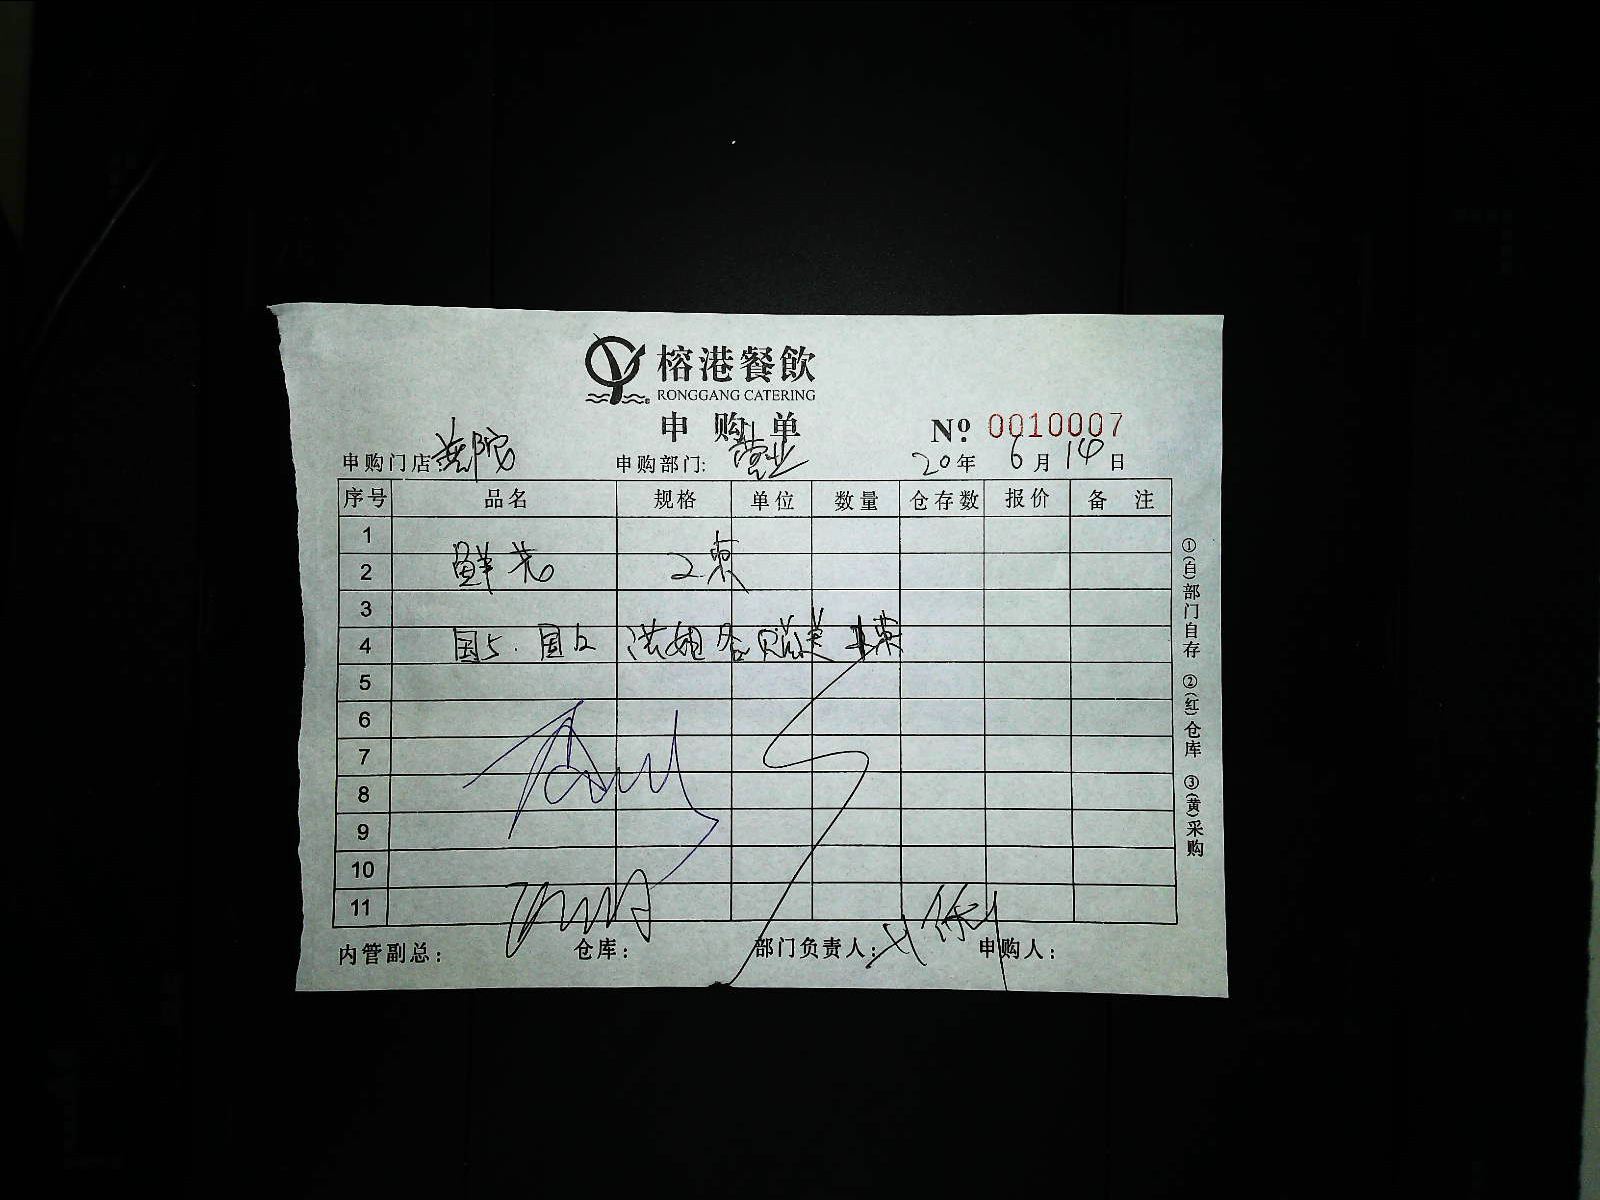 榕港餐飲
RONGGANG CATERING
申购单
№ 0010007
申购门店: 申购部门: 营业 20年 6月 14日
序号 品名 规格 单位 数量 仓存数 报价 备 注
1
2 鲜花 2束
3
4 国5. 国12 洪姐 各 束
5
6
7
8
9
10
11
内管副总: 仓库: 部门负责人: 申购人:
①(白)部门自存 ②(红)仓库 ③(黄)采购